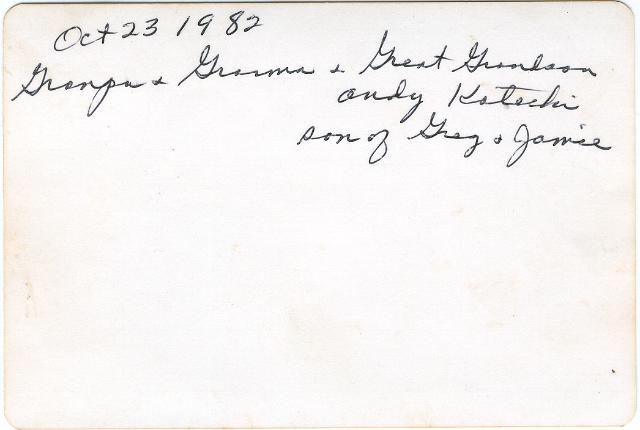 Oct 23 1982
Granpa & Grasma & Great Grandson
andy Koteski
son of Greg & Janice